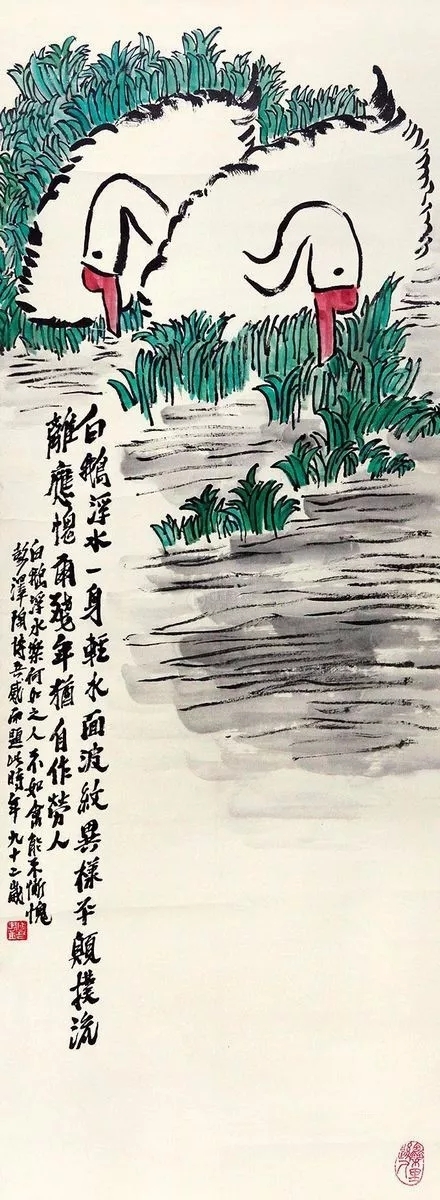 白鵝浮水一身輕水面波紋異樣平顛撲流
離應愧爾殘年猶自作勞人
白鵝浮水樂何如之人不如禽能不慚愧
彭澤陶博吾感而題此時年九十二歲